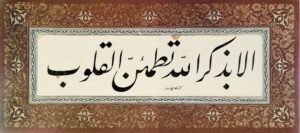 الا بذکر الله تطمئنّ القلوب